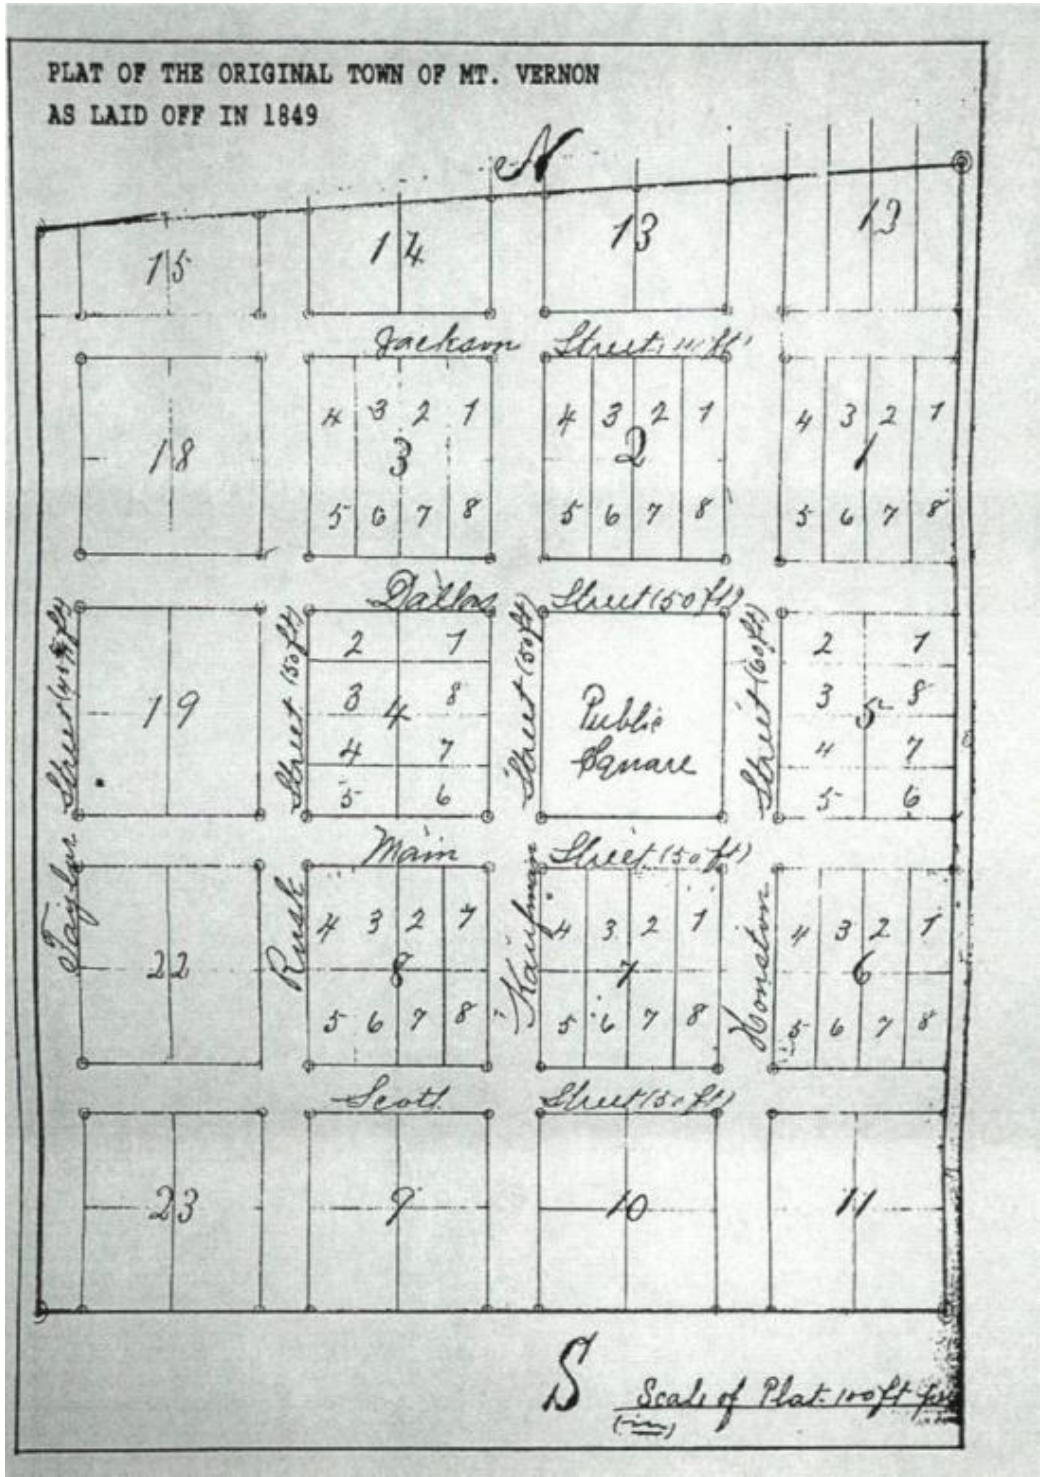 PLAT OF THE ORIGINAL TOWN OF MT. VERNON
AS LAID OFF IN 1849
N
15 14 13 12
Jackson Street
18
4 3 2 1
3
5 6 7 8
4 3 2 1
2
5 6 7 8
4 3 2 1
1
5 6 7 8
Dallas Street (50 ft)
Taylor Street
19
Rusk Street (50 ft)
2 1
3 8
4
4 7
5 6
Kaufman Street (50 ft)
Public
Square
Houston Street (60 ft)
2 1
3 8
5
4 7
5 6
Main Street (50 ft)
22
4 3 2 1
8
5 6 7 8
4 3 2 1
7
5 6 7 8
4 3 2 1
6
5 6 7 8
Scott Street (50 ft)
23 9 10 11
S
Scale of Plat 100 ft per
(in)